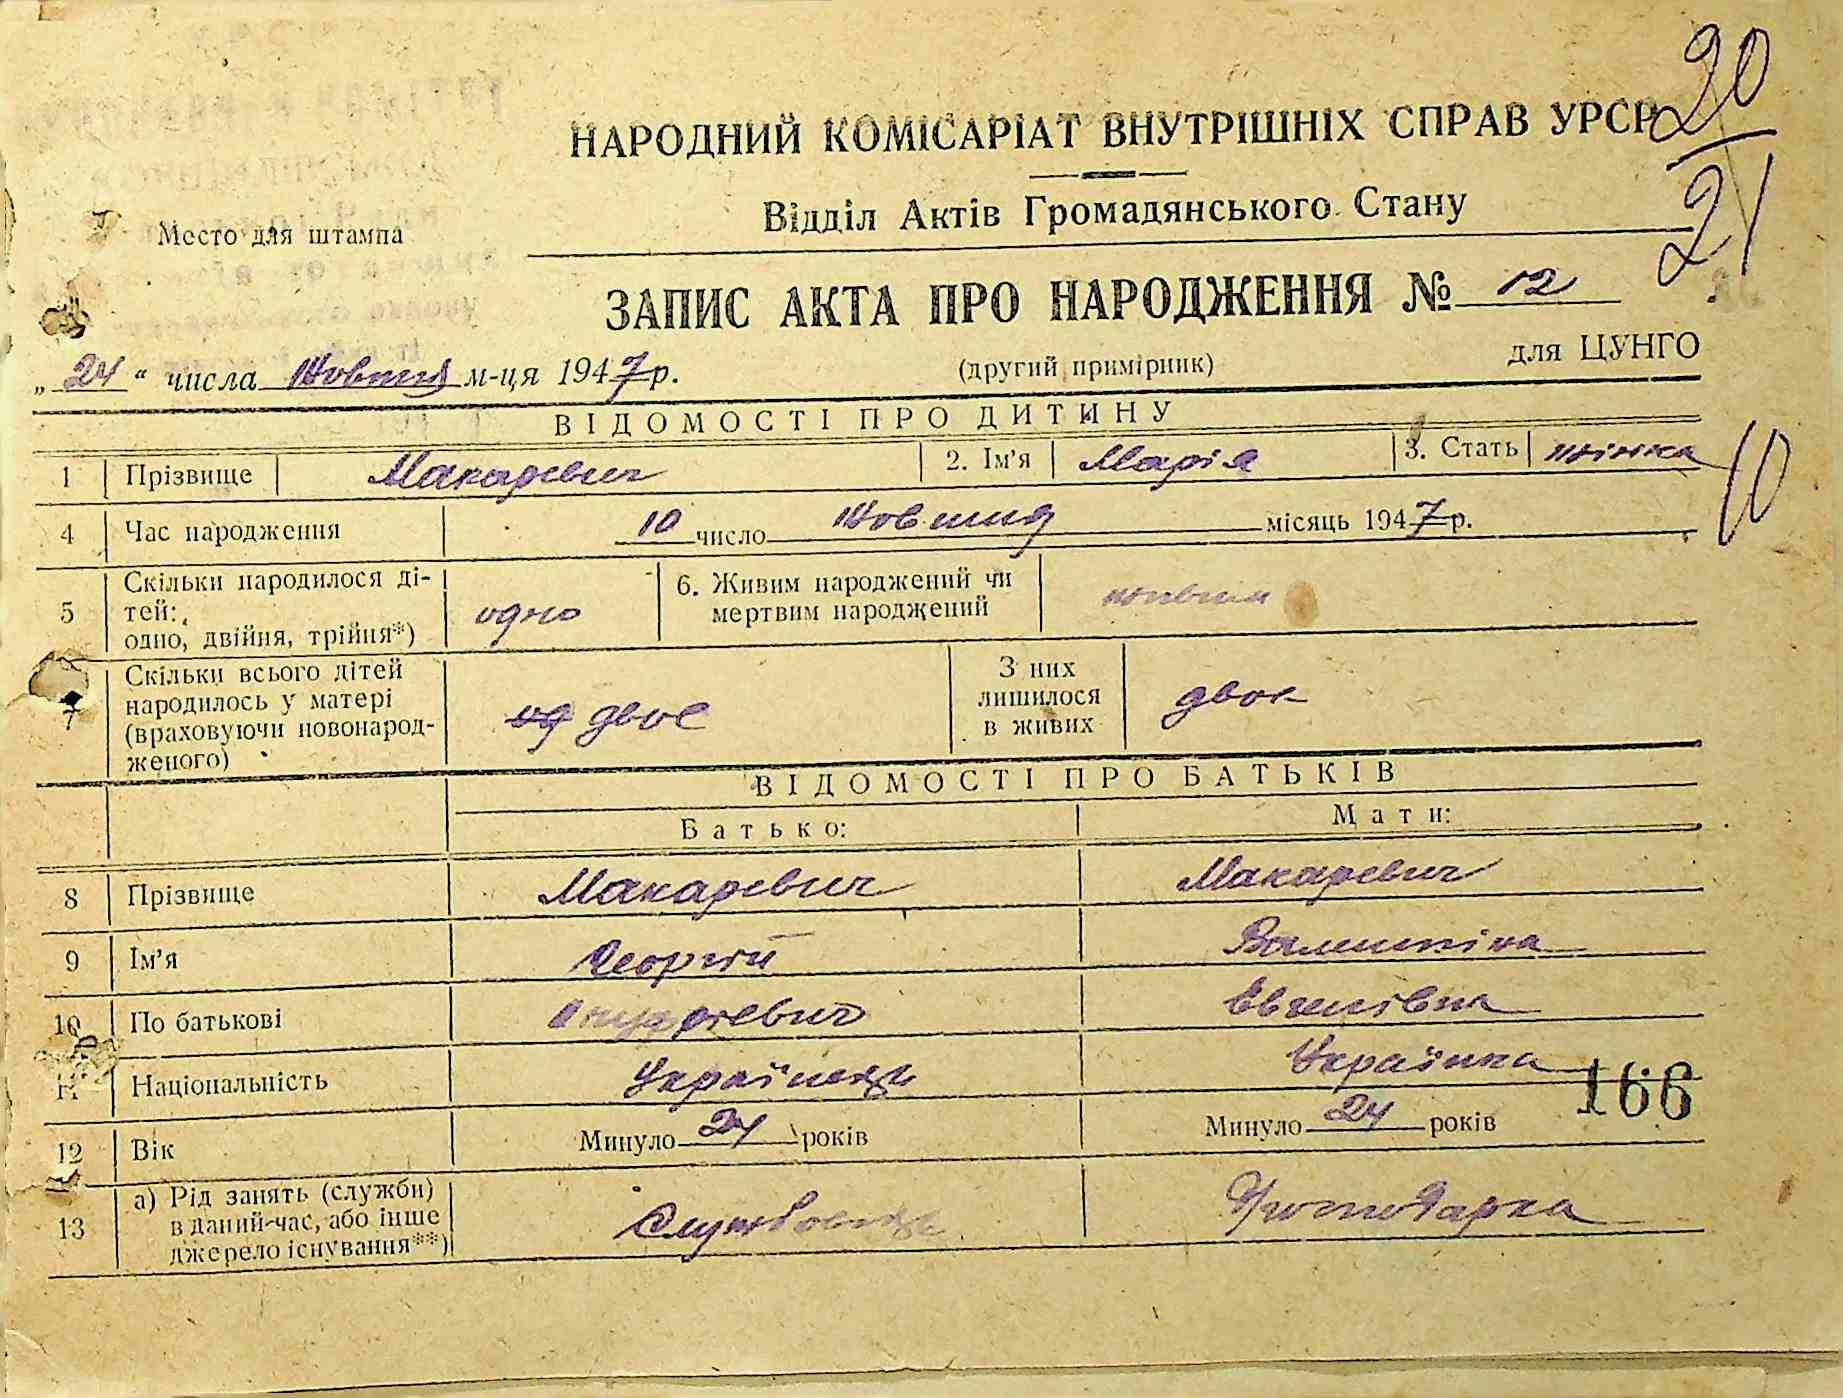 20
21
НАРОДНИЙ КОМІСАРІАТ ВНУТРІШНІХ СПРАВ УРСР
Відділ Актів Громадянського Стану
Место для штампа
ЗАПИС АКТА ПРО НАРОДЖЕННЯ № 12
„24“ числа Жовтня м-ця 1947 р. (другий примірник) для ЦУНГО
ВІДОМОСТІ ПРО ДИТИНУ
1 Прізвище Макаревич 2. Ім'я Марія 3. Стать жінка
10
4 Час народження 10 число Жовтня місяць 1947 р.
5 Скільки народилося ді-
тей:
одно, двійня, трійня*) одно
6. Живим народжений чи
мертвим народжений живим
7 Скільки всього дітей
народилось у матері
(враховуючи новонарод-
женого) од двоє
З них
лишилося
в живих двоє
ВІДОМОСТІ ПРО БАТЬКІВ
Батько: Мати:
8 Прізвище Макаревич Макаревич
9 Ім'я Георгій Валентіна
10 По батькові Евгенівна
11 Національність Українець Українка
166
12 Вік Минуло 24 років Минуло 24 років
13 а) Рід занять (служби)
в даний час, або інше
джерело існування**) Службовець